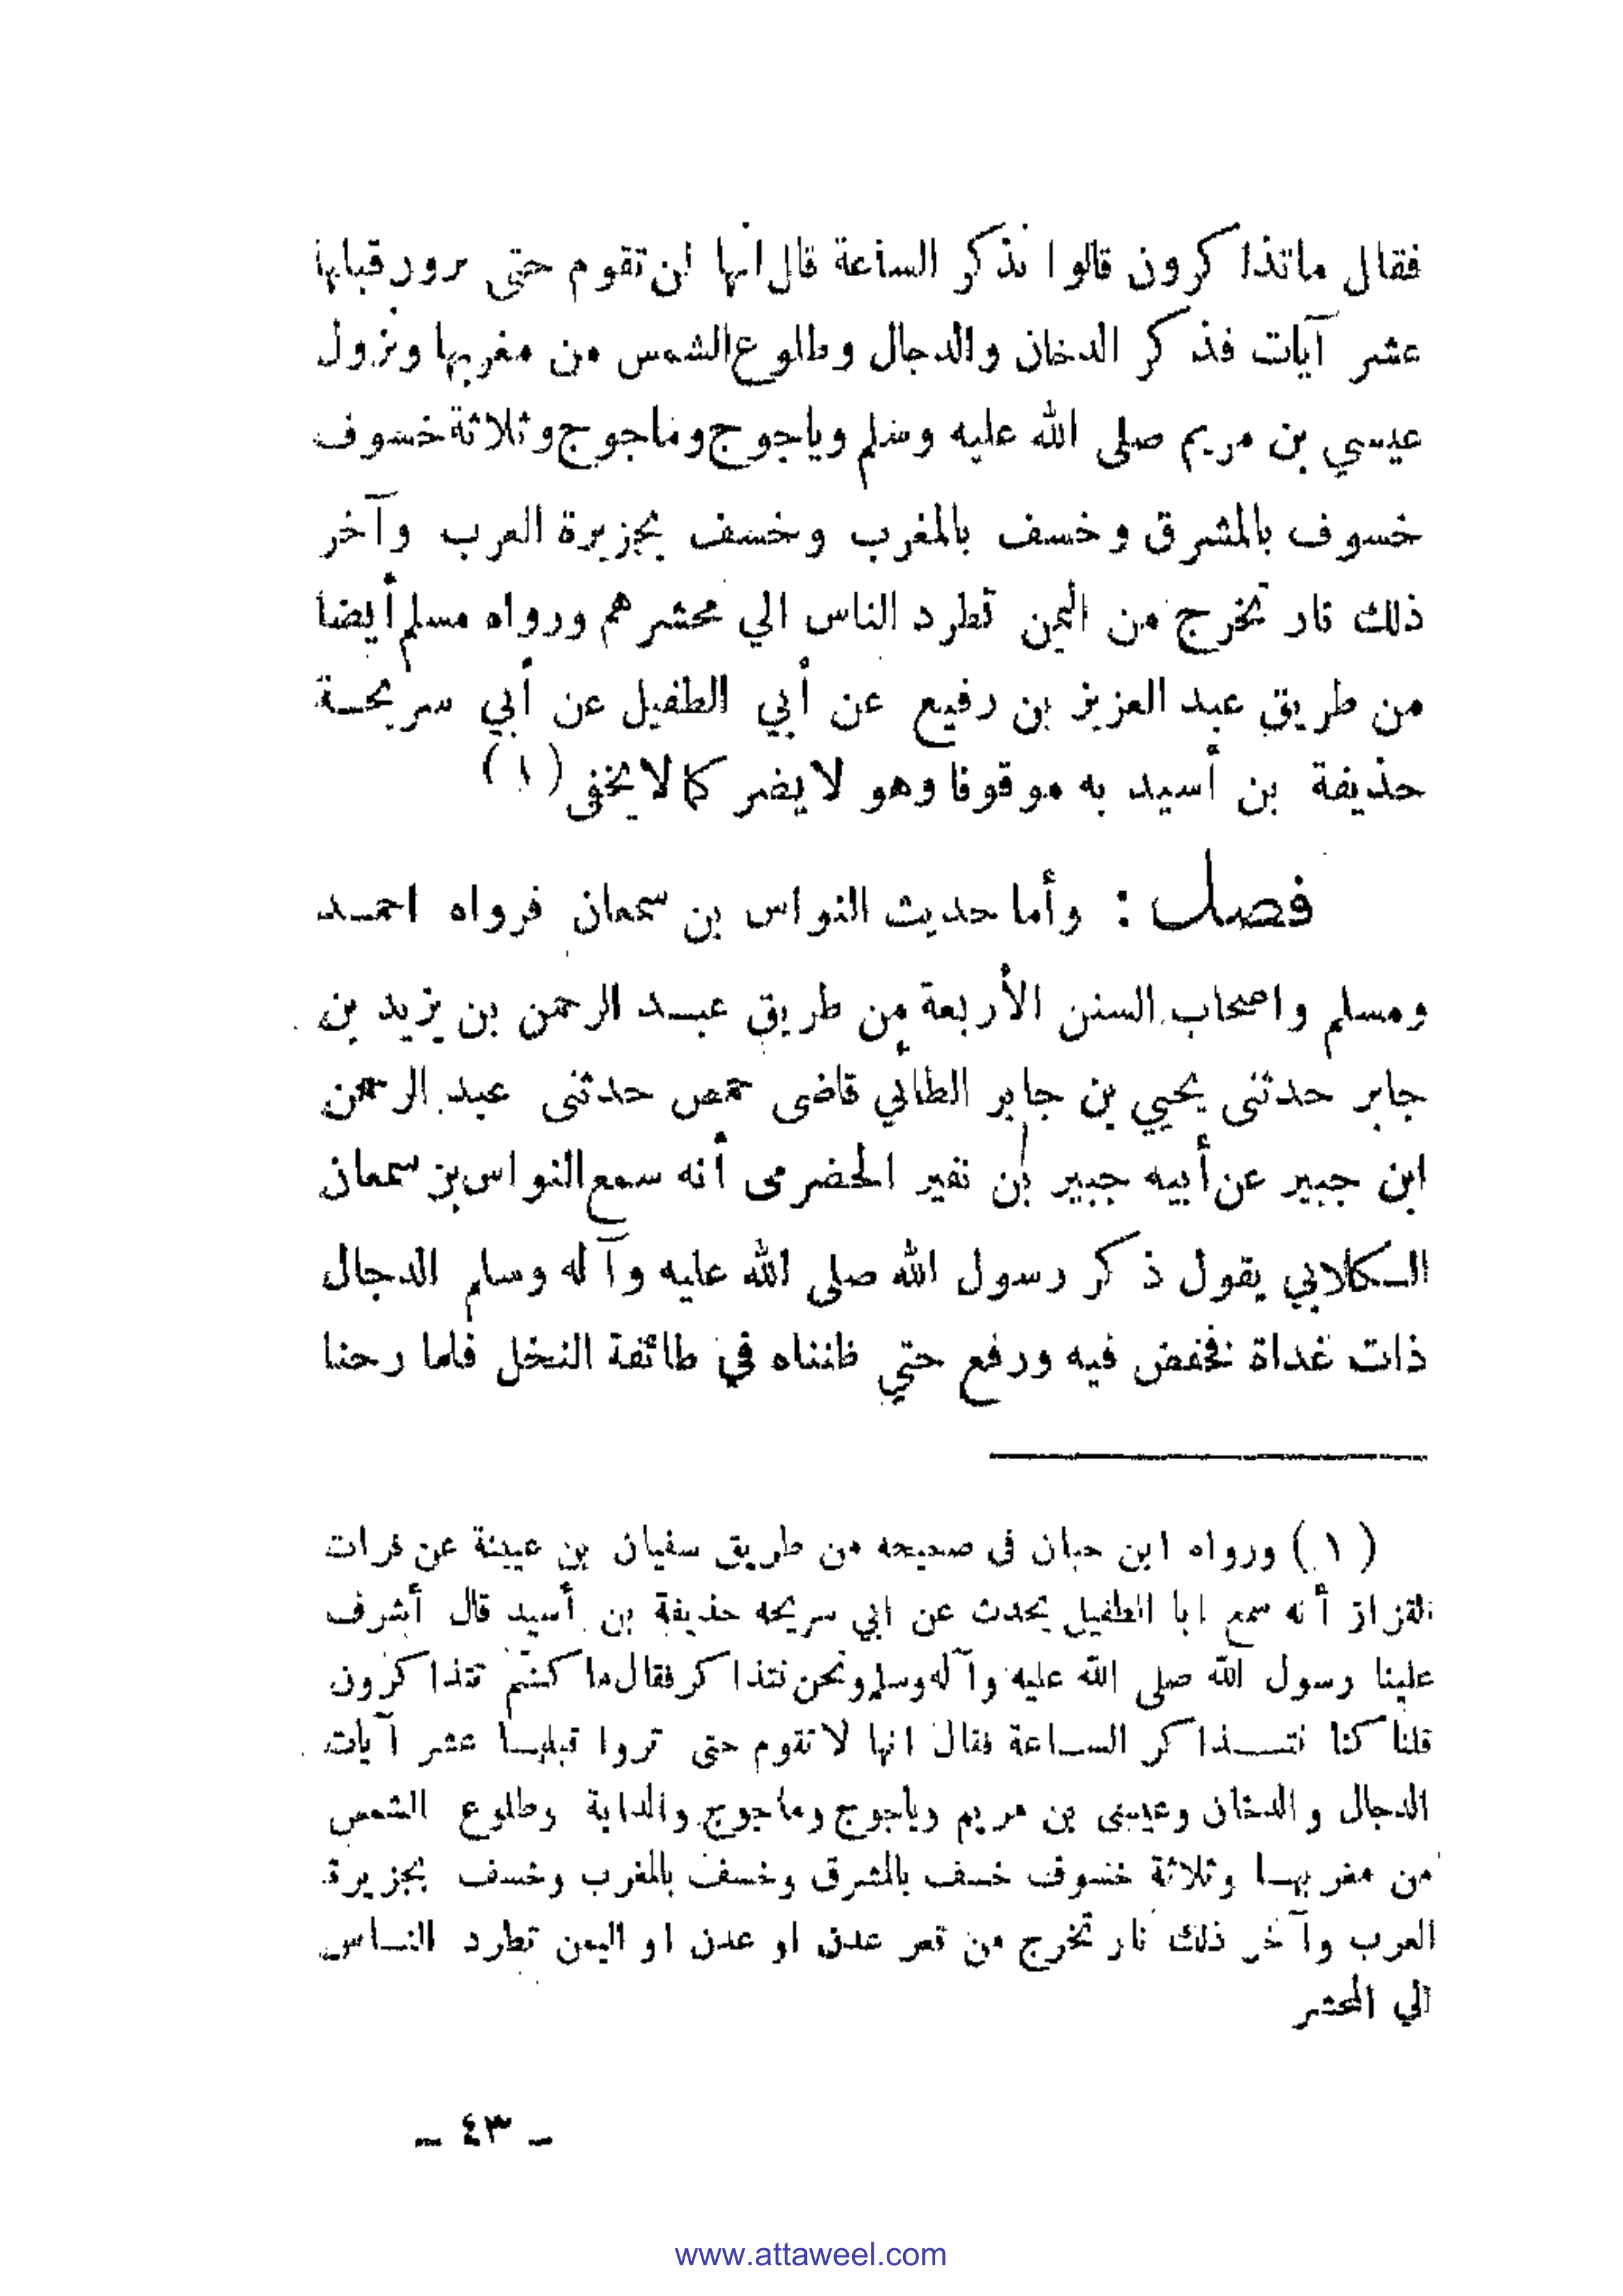 فقال ماتذاكرون قالوا نذكر الساعة قال انها لن تقوم حتى ترور قبلها
عشر آيات فذكر الدخان والدجال وطلوع الشمس من مغربها ونزول
عيسي بن مريم صلى الله عليه وسلم وياجوج وماجوج وثلاثة خسوف
خسوف بالمشرق وخسف بالمغرب وخسف بجزيرة العرب وآخر
ذلك نار تخرج من اليمن تطرد الناس الي محشرهم ورواه مسلم أيضا
من طريق عبد العزيز بن رفيع عن أبي الطفيل عن أبي سريحة
حذيفة بن أسيد به موقوفا وهو لا يضر كما لا يخفى (١)
فصل : وأما حديث النواس بن سمعان فرواه احمد
ومسلم واصحاب السنن الأربعة من طريق عبد الرحمن بن يزيد بن
جابر حدثنى يحيي بن جابر الطائي قاضى حمص حدثنى عبد الرحمن
ابن جبير عن أبيه جبير بن نفير الحضرمى أنه سمع النواس بن سمعان
الكلابي يقول ذكر رسول الله صلى الله عليه وآله وسلم الدجال
ذات غداة فخفض فيه ورفع حتي ظنناه في طائفة النخل فلما رحنا
(١) ورواه ابن حبان فى صحيحه من طريق سفيان بن عيينة عن فرات
القزاز أنه سمع ابا الطفيل يحدث عن ابي سريحه حذيفة بن أسيد قال أشرف
علينا رسول الله صلى الله عليه وآله وسلم ونحن نتذاكر فقال ما كنتم تتذاكرون
قلنا كنا نتذاكر الساعة فقال انها لا تقوم حتى تروا قبلها عشر آيات
الدجال والدخان وعيسى بن مريم وياجوج وماجوج والدابة وطلوع الشمس
من مغربها وثلاثة خسوف خسف بالمشرق وخسف بالمغرب وخسف بجزيرة
العرب وآخر ذلك نار تخرج من قعر عدن او عدن او اليمن تطرد الناس
الي المحشر
ـ ٤٣ ـ
www.attaweel.com